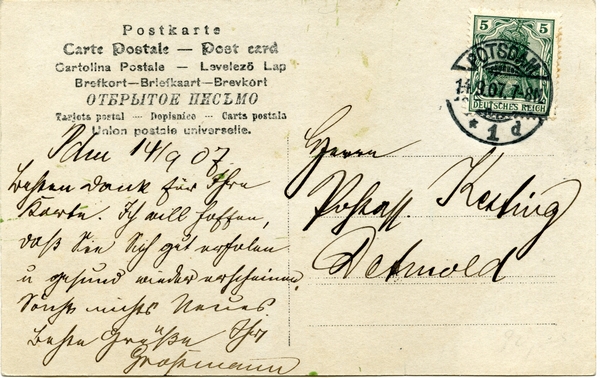 Postkarte
Carte Postale — Post card
Cartolina Postale — Levelező Lap
Brefkort—Briefkaart—Brevkort
ОТКРЫТОЕ ПИСЬМО
Tarjeta postal — Dopisnice — Carta postala
Union postale universelle.
Pdm 14/9 07.
Besten Dank für Ihre
Karte. Ich will hoffen,
daß Sie sich gut erholen
u gesund wieder erscheinen.
Sonst nichts Neues
Beste Grüße Ihr
Großmann
5 5
DEUTSCHES REICH
POTSDAM
9.07.7-8
* 1 d
Herrn
Postass. Kesting
Detmold